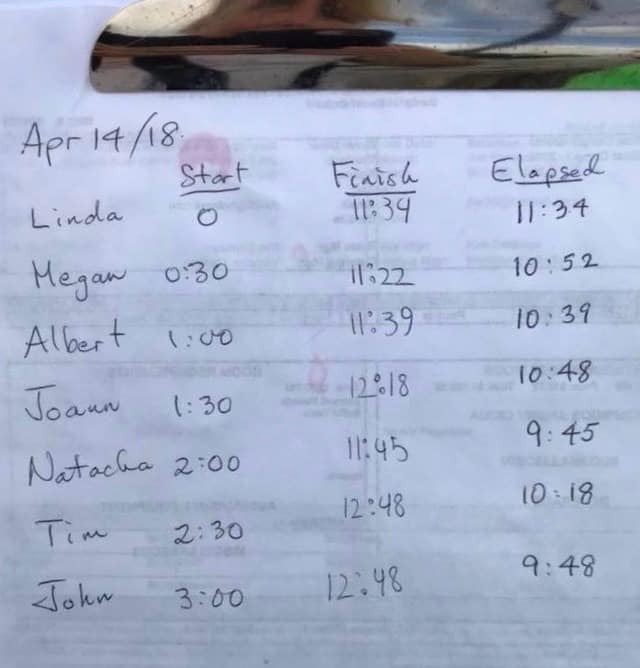 Apr 14/18
Start Finish Elapsed
Linda 0 11:34 11:34
Megan 0:30 11:22 10:52
Albert 1:00 11:39 10:39
Joann 1:30 12:18 10:48
Natacha 2:00 11:45 9:45
Tim 2:30 12:48 10:18
John 3:00 12:48 9:48